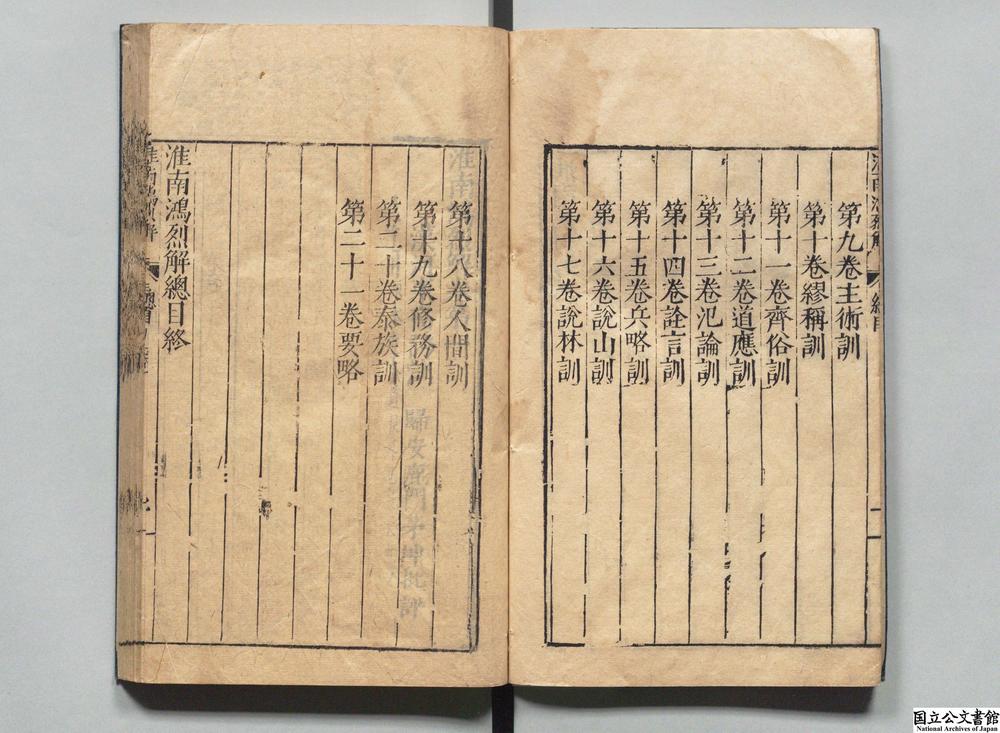 第九卷主術訓
第十卷繆稱訓
第十一卷齊俗訓
第十二卷道應訓
第十三卷氾論訓
第十四卷詮言訓
第十五卷兵略訓
第十六卷說山訓
第十七卷說林訓
第十八卷人間訓
第十九卷修務訓
第二十卷泰族訓
第二十一卷要略
淮南鴻烈解總目終
歸安鹿門茅坤批評
国立公文書館
National Archives of Japan